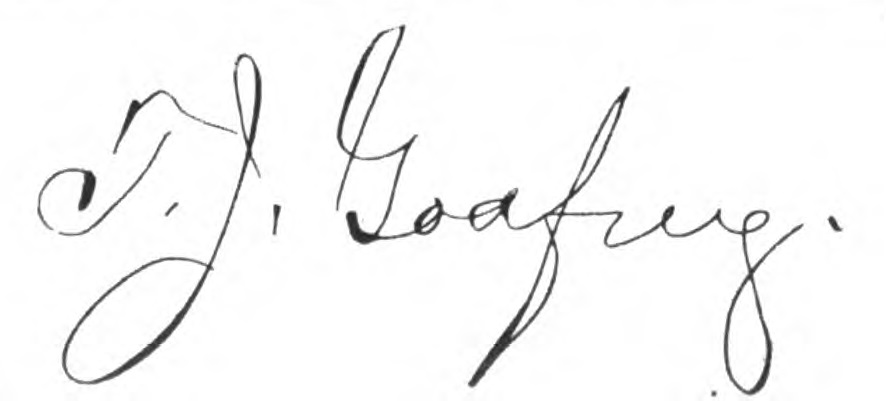 T. J. Godfrey.